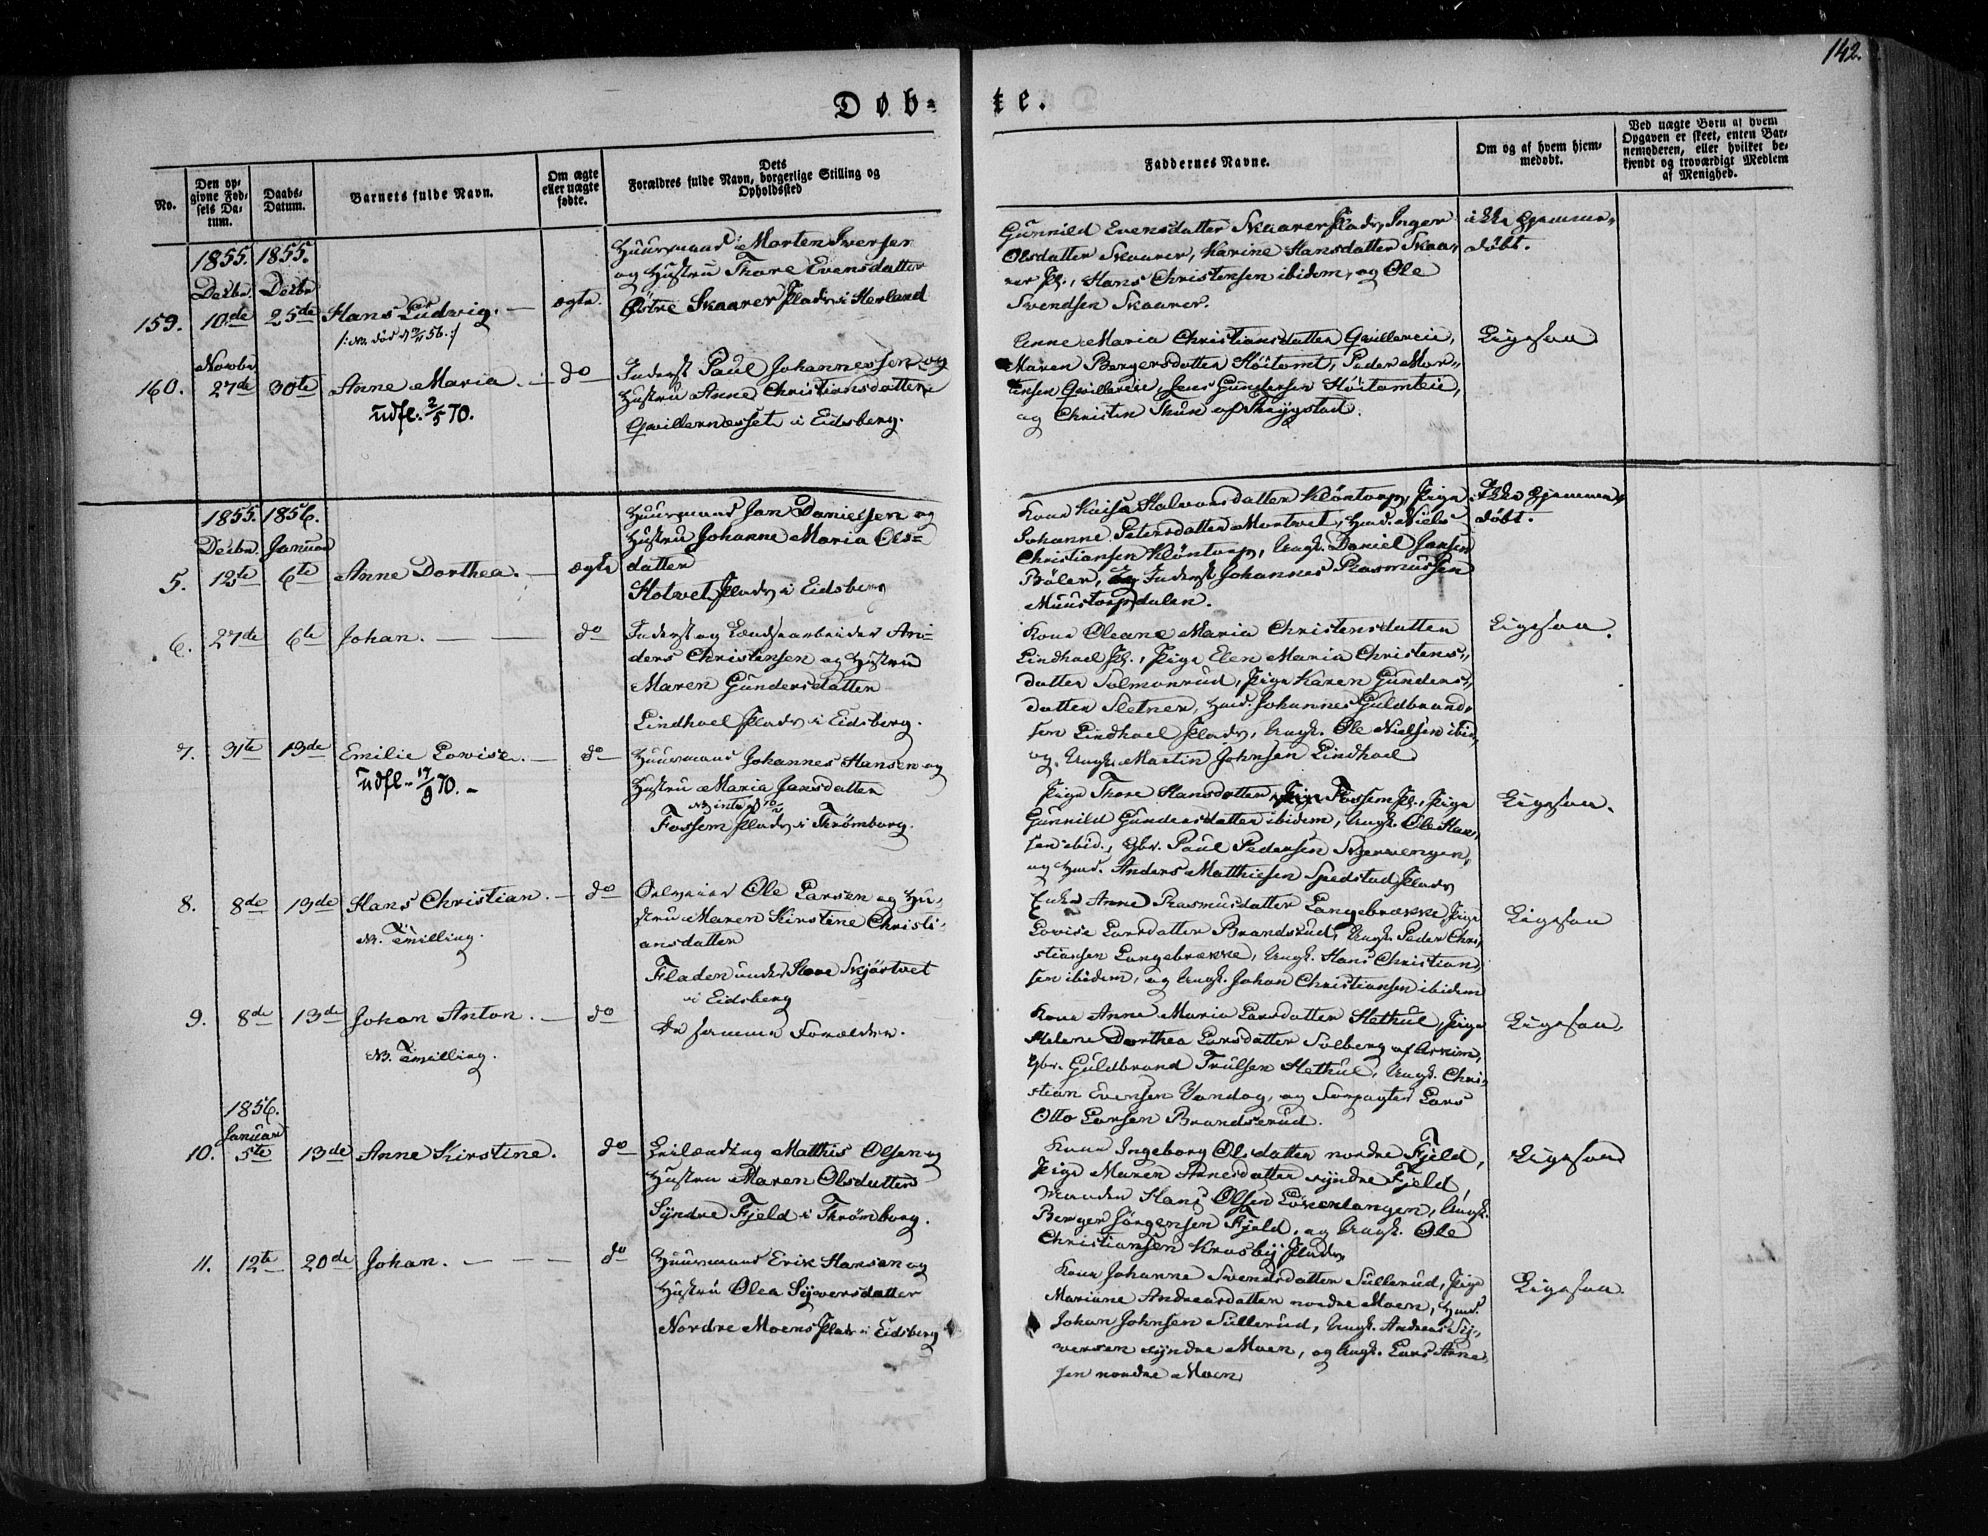 142.
Døb-te.
No.
Den op-
givne Fød-
sels Da-
tum.
Daabs-
Datum.
Barnets fulde Navn.
Om ægte
eller uægte
fødte.
Dets
Forældres fulde Navn, borgerlige Stilling og
Opholdssted
Faddernes Navne.
Om og af hvem hjem-
medøbt.
Ved uægte Børn af hvem
Opgaven er skeet, enten Bar-
nemoderen, eller hvilket be-
kjendt og troværdigt Medlem
af Menighed.
1855. 1855.
Decbr. Decbr.
159. 10de 25de Hans Ludvig. — ægte.
Huusmand Morten Iversen
og Hustru Thore Evensdatter
Østre Skaarer Plads i Herland
Gunnild Evensdatter Skaarer Plads, Inger
Olsdatter Skaarer, Karine Hansdatter Skaa-
rer Pl., Hans Christensen ibidem, og Ole
Svendsen Skaarer.
ikke hjemme-
døbt.
Novbr.
160. 27de 30te Anne Maria. — do
udfl. 2/5 70.
Inderst Paul Johannessen og
Hustru Anne Christiansdatter
i Eidsberg.
Anne Maria Christiansdatter
Maren Bergersdatter Høitomt, Peder Mor-
tensen Jens Gundersen
og Christen Thun af
Ligesaa
1855. 1856.
Decbr. Januar
5. 12te 6te Anne Dorthea. — ægte
Huusmand Jan Danielsen og
Hustru Johanne Maria Ols-
datter
Holvet Plads i Eidsberg
Kone Kaisa Halvorsdatter Kløntorp, Pige
Johanne Petersdatter Mortvet, Huusmd. Niels
Christiansen Kløntorp, Ungk. Daniel Jansen
Bøler, Inderst Johannes Rasmussen
Muustorpdalen.
Ikke hjemme-
døbt.
6. 27de 6te Johan. — — do
Inderst og An-
ders Christensen og Hustru
Maren Gundersdatter
Lindhoel Plads i Eidsberg.
Kone Oleane Maria Christensdatter
Lindhoel Pl., Pige Elen Maria Christens-
datter Solmonrud, Pige Karen Gunders-
datter Sletner, Huusmd. Johannes Guldbrand-
sen Lindhoel Plads, Ungk. Ole Nielsen ibid.,
og Ungk. Martin Johnsen Lindhoel
Ligesaa.
7. 31te 13de Emilie Lovise. — do
udfl. 17/9 70. -
Huusmand Johannes Hansen og
Hustru Maria Jansdatter
Fossem Plads i Thrømborg.
Pige Thore Hansdatter Fossem Pl., Pige
Gunnild Gundersdatter ibidem, Ungk. Ole Han-
sen ibid., Gbr. Paul Pedersen
og Huusmd. Anders Matthiesen Plads
Ligesaa.
8. 8de 13de Hans Christian. — do
NB. Tvilling.
Ole Larsen og Hu-
stru Maren Kirstine Christi-
ansdatter
Fladen under Store Skjørtvet
i Eidsberg
Enke Anne Rasmusdatter Langebrække, Pige
Lovise Larsdatter Brandsrud, Ungk. Peder Chri-
stiansen Langebrække, Ungk. Hans Christian-
sen ibidem, og Ungk. Johan Christiansen ibidem
Ligesaa
9. 8de 13de Johan Anton. — do
NB. Tvilling.
De samme Forældre.
Kone Anne Maria Larsdatter Hethul, Pige
Helene Dorthea Larsdatter Solberg af Askim,
Gbr. Guldbrand Trulsen Hethul, Ungk. Chri-
stian Evensen Vandog, og Forpagter Lars
Otto Larsen Brandsrud.
Ligesaa.
1856.
Januar
10. 5te 13de Anne Kirstine. do
Leilænding Matthis Olsen og
Hustru Maren Olsdatter
Syndre Fjeld i Thrømborg.
Kone Ingeborg Olsdatter nordre Fjeld,
Pige Maren Arnesdatter syndre Fjeld,
Hans Olsen Ungk.
Berger Jörgensen Fjeld, og Ungk. Ole
Christiansen Krosby Plads
Ligesaa
11. 12te 20de Johan. — — — do
Huusmand Erik Hansen og
Hustru Olea Syversdatter
Nordre Moens Plads i Eidsberg
Kone Johanne Svendsdatter Sullerud, Pige
Mariane Andreasdatter nordre Moen, Huusmd.
Johan Johnsen Sullerud, Ungk. Andreas Sy-
versen syndre Moen, og Ungk. Lars Arne-
sen nordre Moen
Ligesaa.